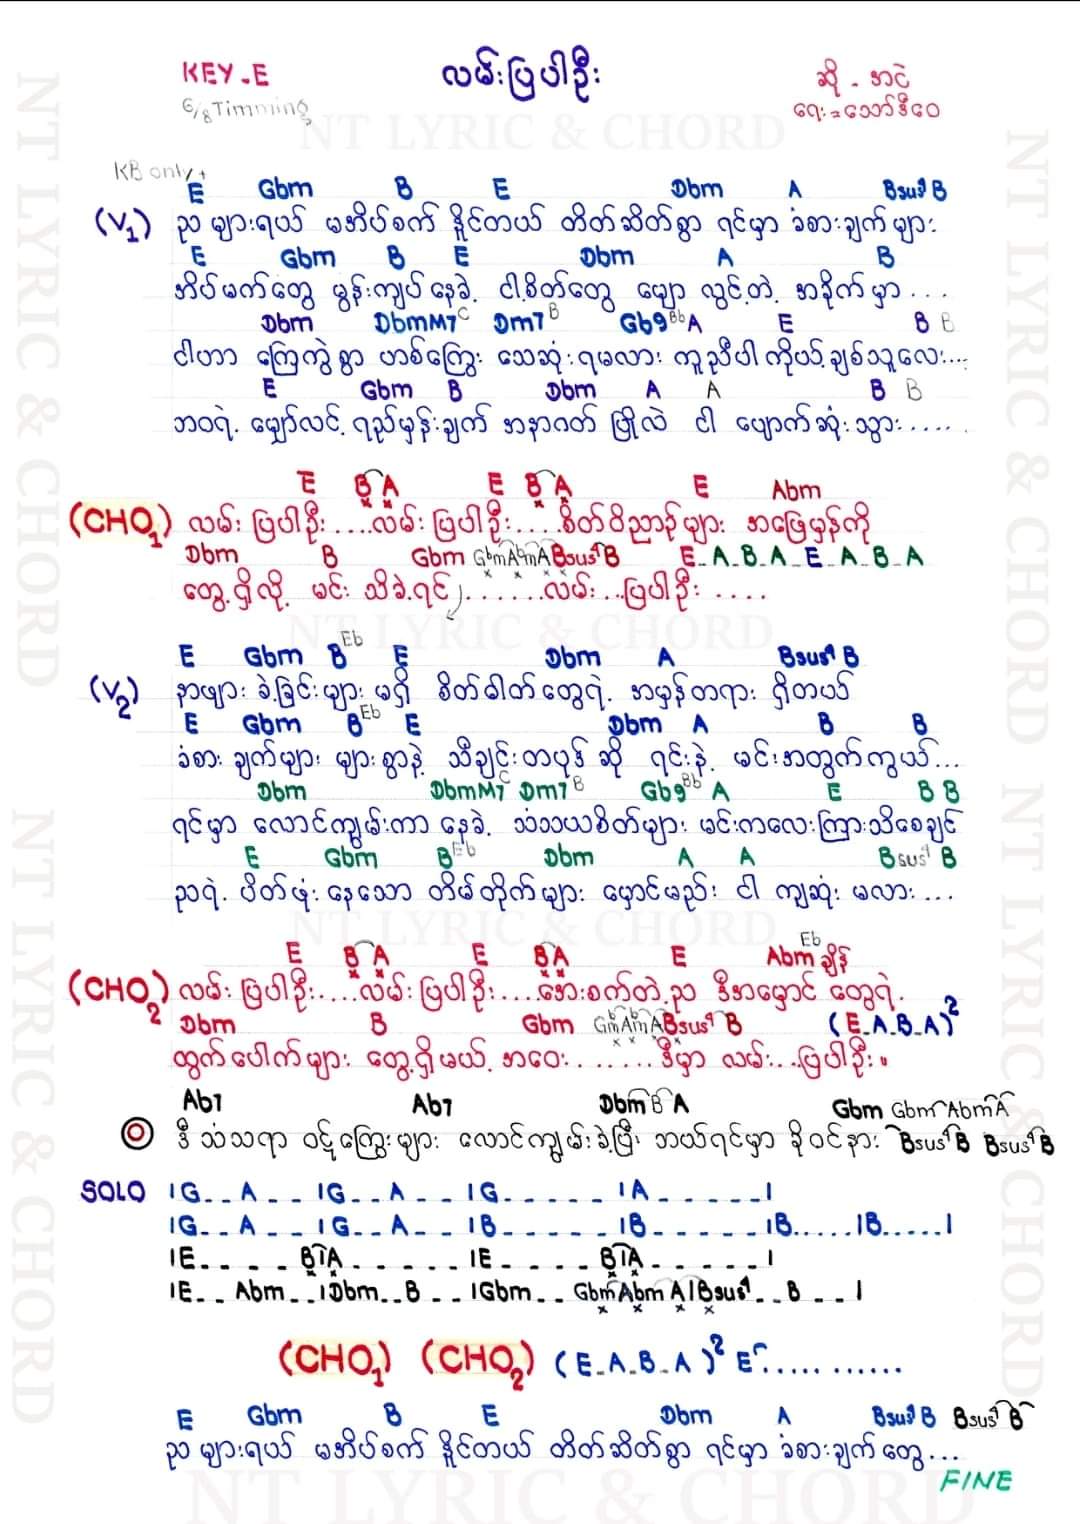 KEY.E
လမ်းပြပါဦး
ဆို - အငဲ
6/8 Timming
ရေး = သော်ဒီဝေ
NT LYRIC & CHORD
KB only
E Gbm B E Dbm A Bsus4 B
(V1) ည များရယ် မအိပ်စက် နိုင်တယ် တိတ်ဆိတ်စွာ ရင်မှာ ခံစားချက် များ
E Gbm B E Dbm A B
အိပ်မက်တွေ မွန်းကျပ် နေခဲ့ ငါ့စိတ်တွေ မျော လွင့်တဲ့ အခိုက် မှာ ...
Dbm DbmM7 C Dm7 B Gb9 Bb A E B B
ငါဟာ ကြေကွဲစွာ ဟစ်ကြွေး သေဆုံးရမလား ကူညီပါ ကိုယ့်ချစ်သူလေး...
E Gbm B Dbm A A B B
ဘဝရဲ့ မျှော်လင့် ရည်မှန်းချက် အနာဂတ် ဖြိုလဲ ငါ ပျောက်ဆုံးသွား.....
E B A E B A E Abm
(CHO1) လမ်း ပြပါဦး....လမ်း ပြပါဦး....စိတ်ဝိညာဉ်များ အဖြေမှန်ကို
Dbm B Gbm Gbm Abm A Bsus4 B E_A_B_A_E_A_B_A
တွေ့ရှိလို့ မင်း သိခဲ့ရင်.......လမ်း...ပြပါဦး ....
NT LYRIC & CHORD
E Gbm B Eb E Dbm A Bsus4 B
(V2) နာဖျား ခဲ့ခြင်းများ မရှိ စိတ်ဓါတ်တွေရဲ့ အမှန်တရား ရှိတယ်
E Gbm B Eb E Dbm A B B
ခံစား ချက်များ များစွာနဲ့ သီချင်းတပုဒ် ဆို ရင်းနဲ့ မင်းအတွက်ကွယ်...
Dbm DbmM7 C Dm7 B Gb9 Bb A E B B
ရင်မှာ လောင်ကျွမ်းကာ နေခဲ့ သံသယစိတ်များ မင်းကလေးကြားသိစေချင်
E Gbm B Eb Dbm A A Bsus4 B
ညရဲ့ ပိတ်ဖုံး နေသော တိမ်တိုက်များ မှောင်မည်း ငါ ကျဆုံး မလား ...
NT LYRIC & CHORD
E B A E B A E Abm Eb ချိန်
(CHO2) လမ်း ပြပါဦး....လမ်း ပြပါဦး....အေးစက်တဲ့ည ဒီအမှောင် တွေရဲ့
Dbm B Gbm Gbm Abm A Bsus4 B (E_A_B_A)2
ထွက်ပေါက်များ တွေ့ရှိမယ့် အဝေး.......ဒီမှာ လမ်း...ပြပါဦး။
Ab7 Ab7 Dbm B A Gbm Gbm Abm A
ဒီ သံသရာ ဝဋ်ကြွေးများ လောင်ကျွမ်းခဲ့ပြီ ဘယ်ရင်မှာ ခိုဝင်နား Bsus4 B Bsus4 B
SOLO |G_ _A_ _|G_ _A_ _|G_ _ _ _ _|A_ _ _ _ _|
|G_ _A_ _|G_ _A_ _|B_ _ _ _ _|B_ _ _ _ _|B.....|B.....|
|E_ _ _ _ B|A_ _ _ _ _|E_ _ _ _ B|A_ _ _ _ _|
|E_ _Abm_ _|Dbm_ _B_ _|Gbm_ _ Gbm Abm A|Bsus4_ _B_ _|
(CHO1) (CHO2) (E_A_B_A)2 E............
E Gbm B E Dbm A Bsus4 B Bsus4 B
ည များရယ် မအိပ်စက် နိုင်တယ် တိတ်ဆိတ်စွာ ရင်မှာ ခံစားချက် တွေ...
FINE
NT LYRIC & CHORD